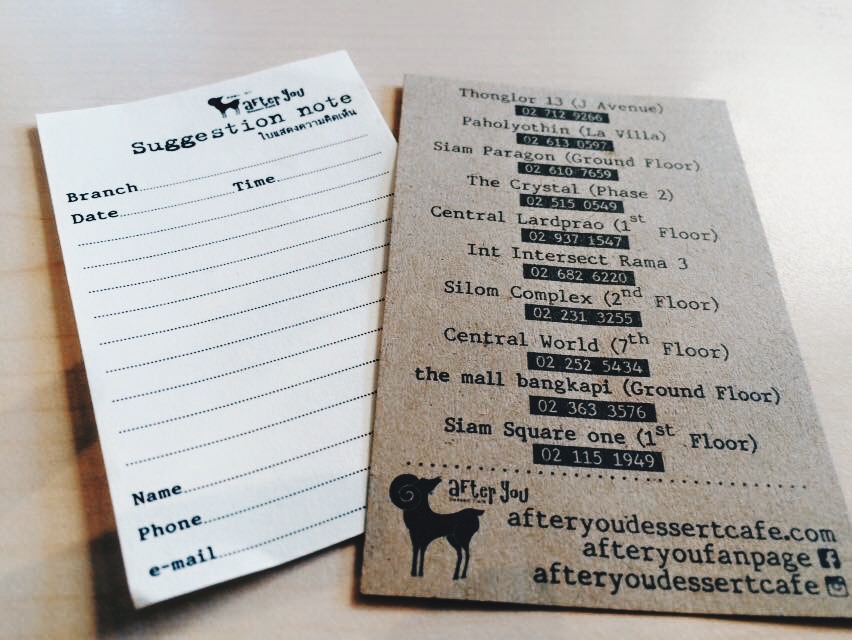 after you
Suggestion note
ใบแสดงความคิดเห็น
Branch
Time
Date
Name
Phone
e-mail
Thonglor 13 (J Avenue)
02 712 9266
Paholyothin (La Villa)
02 613 0597
Siam Paragon (Ground Floor)
02 610 7659
The Crystal (Phase 2)
02 515 0549
Central Lardprao (1st Floor)
02 937 1547
Int Intersect Rama 3
02 682 6220
Silom Complex (2nd Floor)
02 231 3255
Central World (7th Floor)
02 252 5434
the mall bangkapi (Ground Floor)
02 363 3576
Siam Square one (1st Floor)
02 115 1949
after you
Dessert Cafe
afteryoudessertcafe.com
afteryoufanpage
afteryoudessertcafe